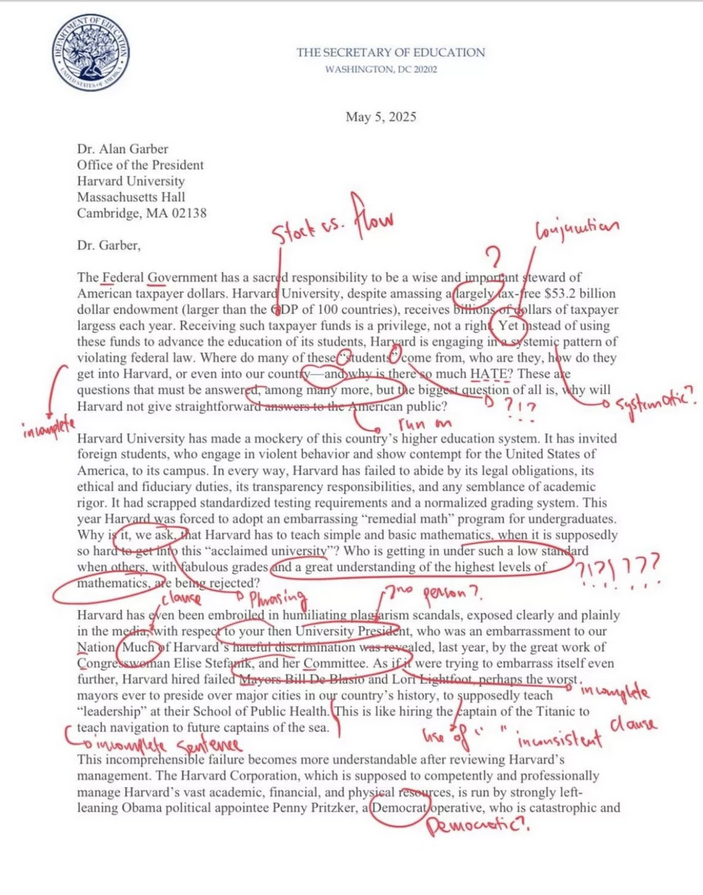 DEPARTMENT OF EDUCATION
UNITED STATES OF AMERICA
THE SECRETARY OF EDUCATION
WASHINGTON, DC 20202
May 5, 2025
Dr. Alan Garber
Office of the President
Harvard University
Massachusetts Hall
Cambridge, MA 02138
Stock vs. flow
Conjunction
Dr. Garber,
?
The Federal Government has a sacred responsibility to be a wise and important steward of
American taxpayer dollars. Harvard University, despite amassing a largely tax-free $53.2 billion
dollar endowment (larger than the GDP of 100 countries), receives billions of dollars of taxpayer
largess each year. Receiving such taxpayer funds is a privilege, not a right. Yet instead of using
these funds to advance the education of its students, Harvard is engaging in a systemic pattern of
violating federal law. Where do many of these “students” come from, who are they, how do they
get into Harvard, or even into our country—and why is there so much HATE? These are
questions that must be answered, among many more, but the biggest question of all is, why will
Harvard not give straightforward answers to the American public?
?!?
systematic?
incomplete
run on
Harvard University has made a mockery of this country’s higher education system. It has invited
foreign students, who engage in violent behavior and show contempt for the United States of
America, to its campus. In every way, Harvard has failed to abide by its legal obligations, its
ethical and fiduciary duties, its transparency responsibilities, and any semblance of academic
rigor. It had scrapped standardized testing requirements and a normalized grading system. This
year Harvard was forced to adopt an embarrassing “remedial math” program for undergraduates.
Why is it, we ask, that Harvard has to teach simple and basic mathematics, when it is supposedly
so hard to get into this “acclaimed university”? Who is getting in under such a low standard
when others, with fabulous grades and a great understanding of the highest levels of
mathematics, are being rejected?
?!?!???
clause
phrasing
2nd person?
Harvard has even been embroiled in humiliating plagiarism scandals, exposed clearly and plainly
in the media, with respect to your then University President, who was an embarrassment to our
Nation. Much of Harvard’s hateful discrimination was revealed, last year, by the great work of
Congresswoman Elise Stefanik, and her Committee. As if it were trying to embarrass itself even
further, Harvard hired failed Mayors Bill De Blasio and Lori Lightfoot, perhaps the worst
mayors ever to preside over major cities in our country’s history, to supposedly teach
“leadership” at their School of Public Health. This is like hiring the captain of the Titanic to
teach navigation to future captains of the sea.
incomplete
clause
incomplete sentence
use of “ ” inconsistent
This incomprehensible failure becomes more understandable after reviewing Harvard’s
management. The Harvard Corporation, which is supposed to competently and professionally
manage Harvard’s vast academic, financial, and physical resources, is run by strongly left-
leaning Obama political appointee Penny Pritzker, a Democrat operative, who is catastrophic and
Democratic?